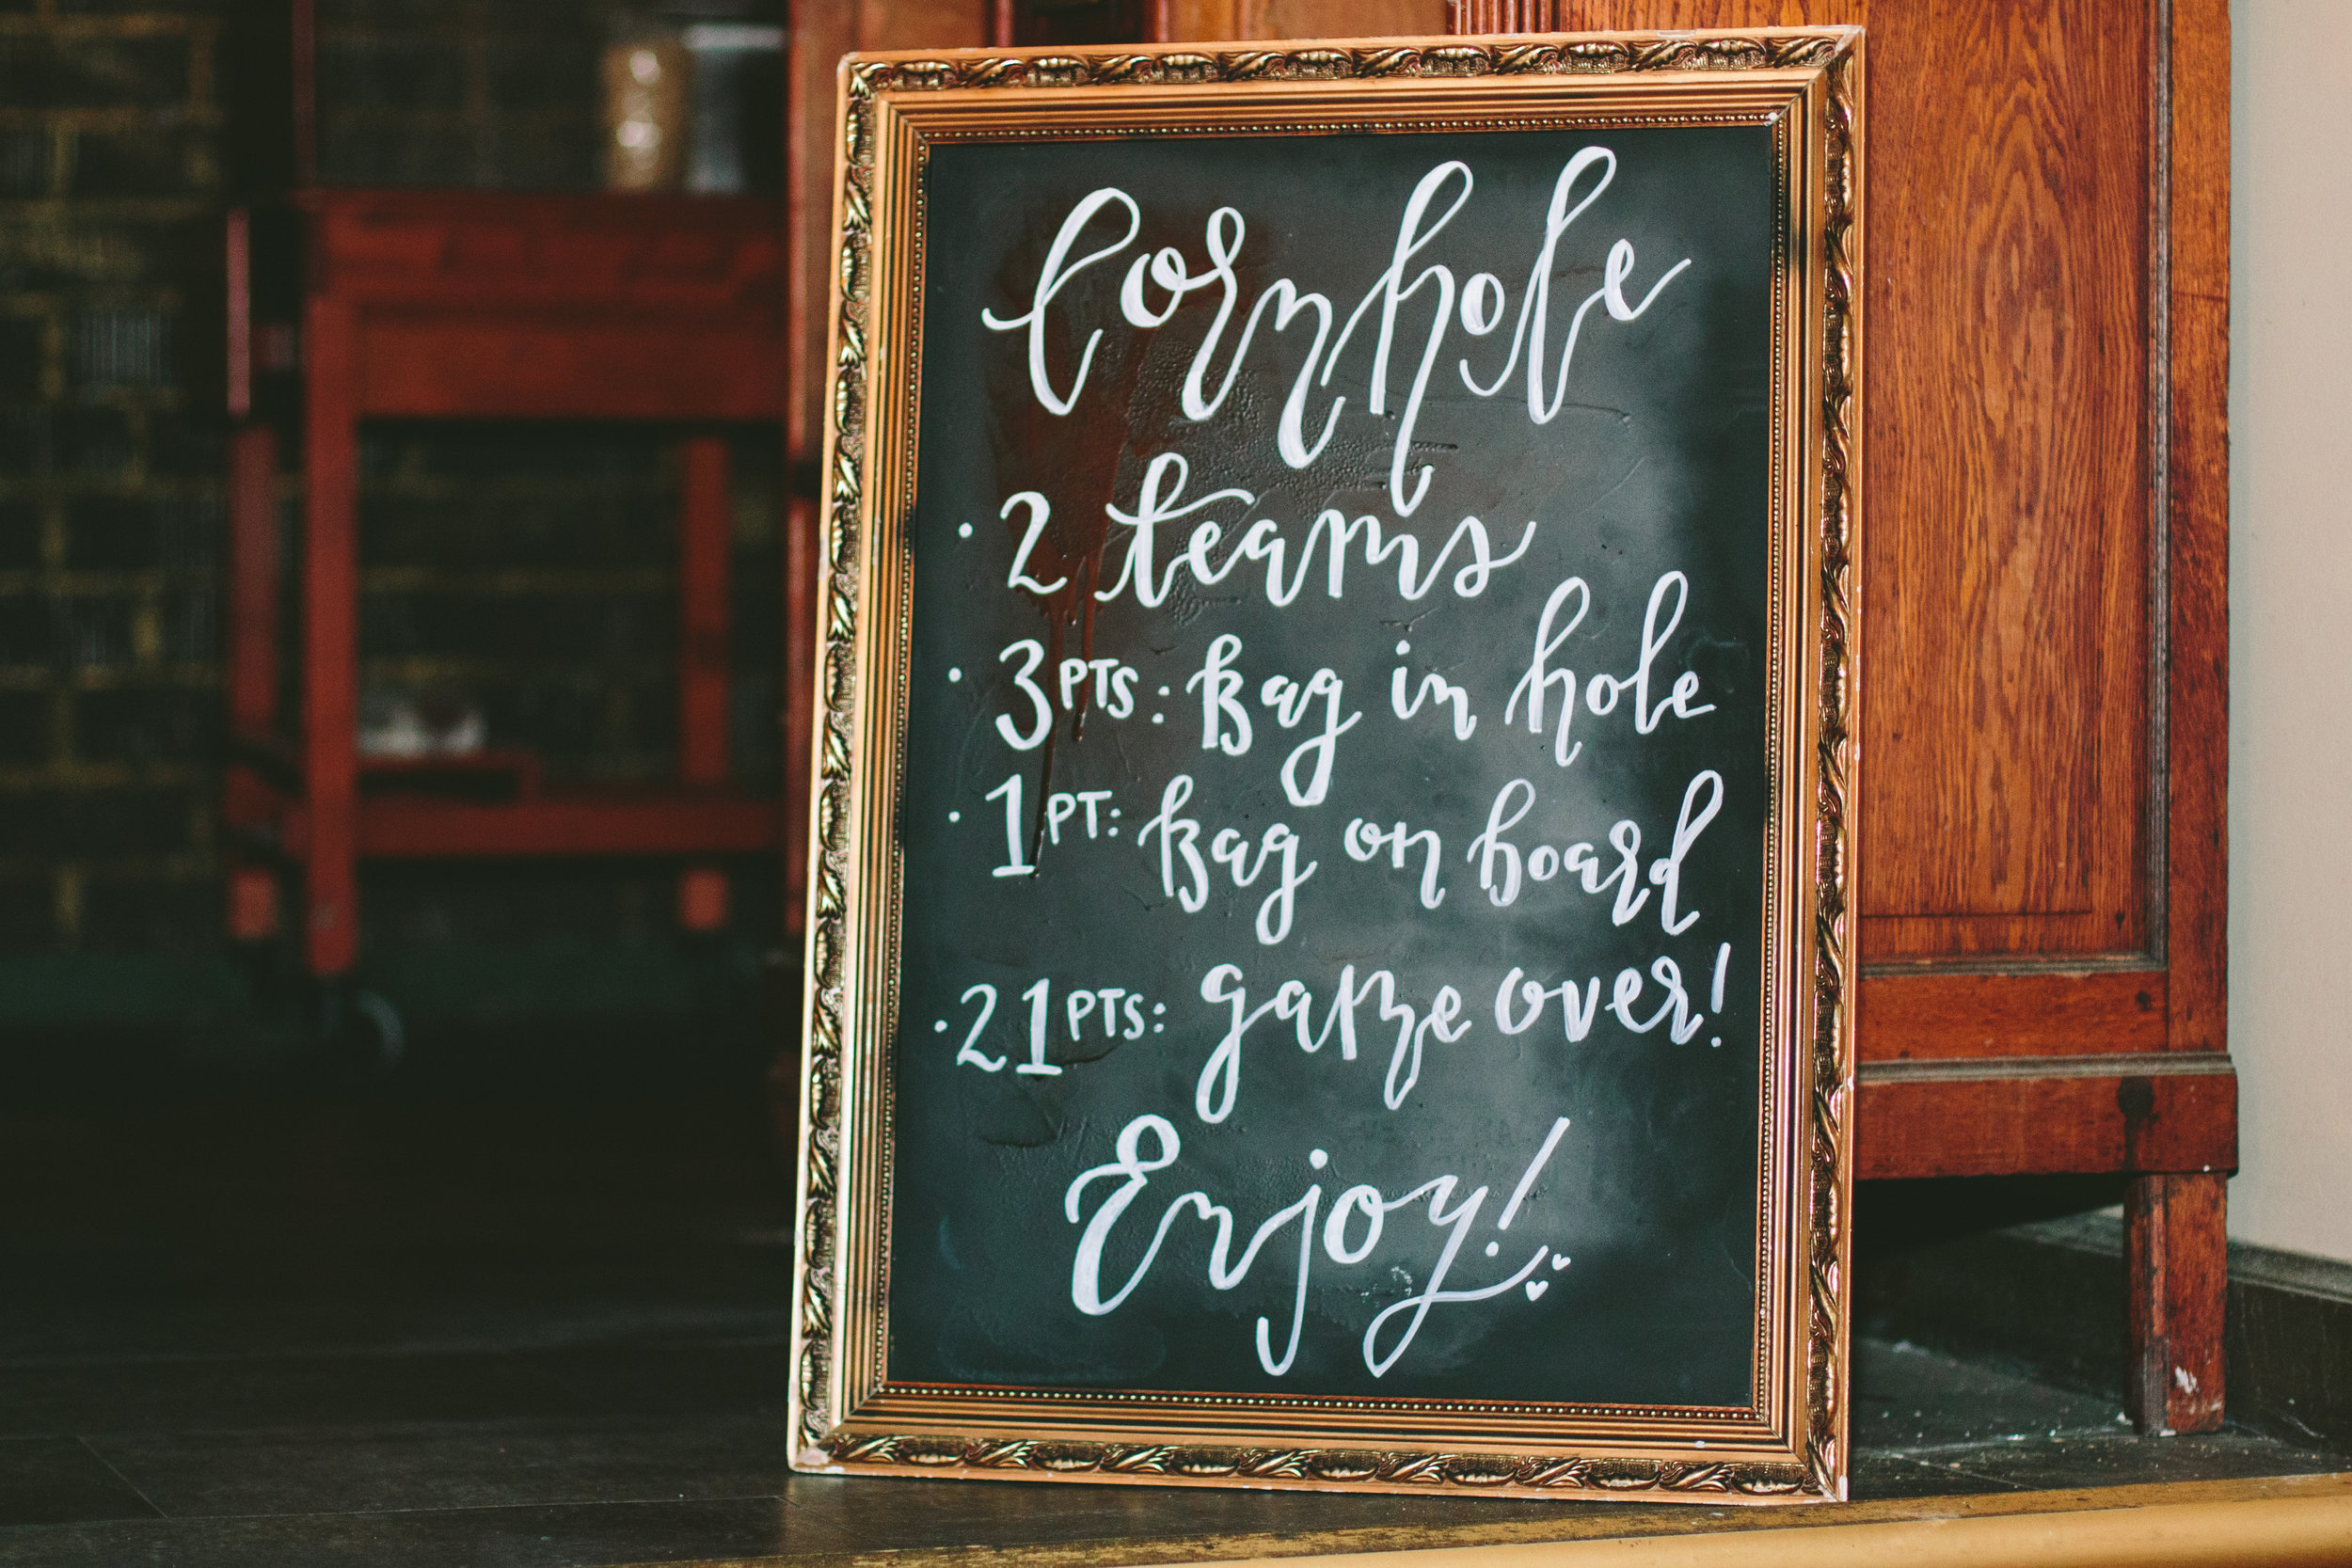 Cornhole
· 2 teams
· 3 PTS: Bag in hole
· 1 PT: Bag on board
· 21 PTS: game over!
Enjoy!